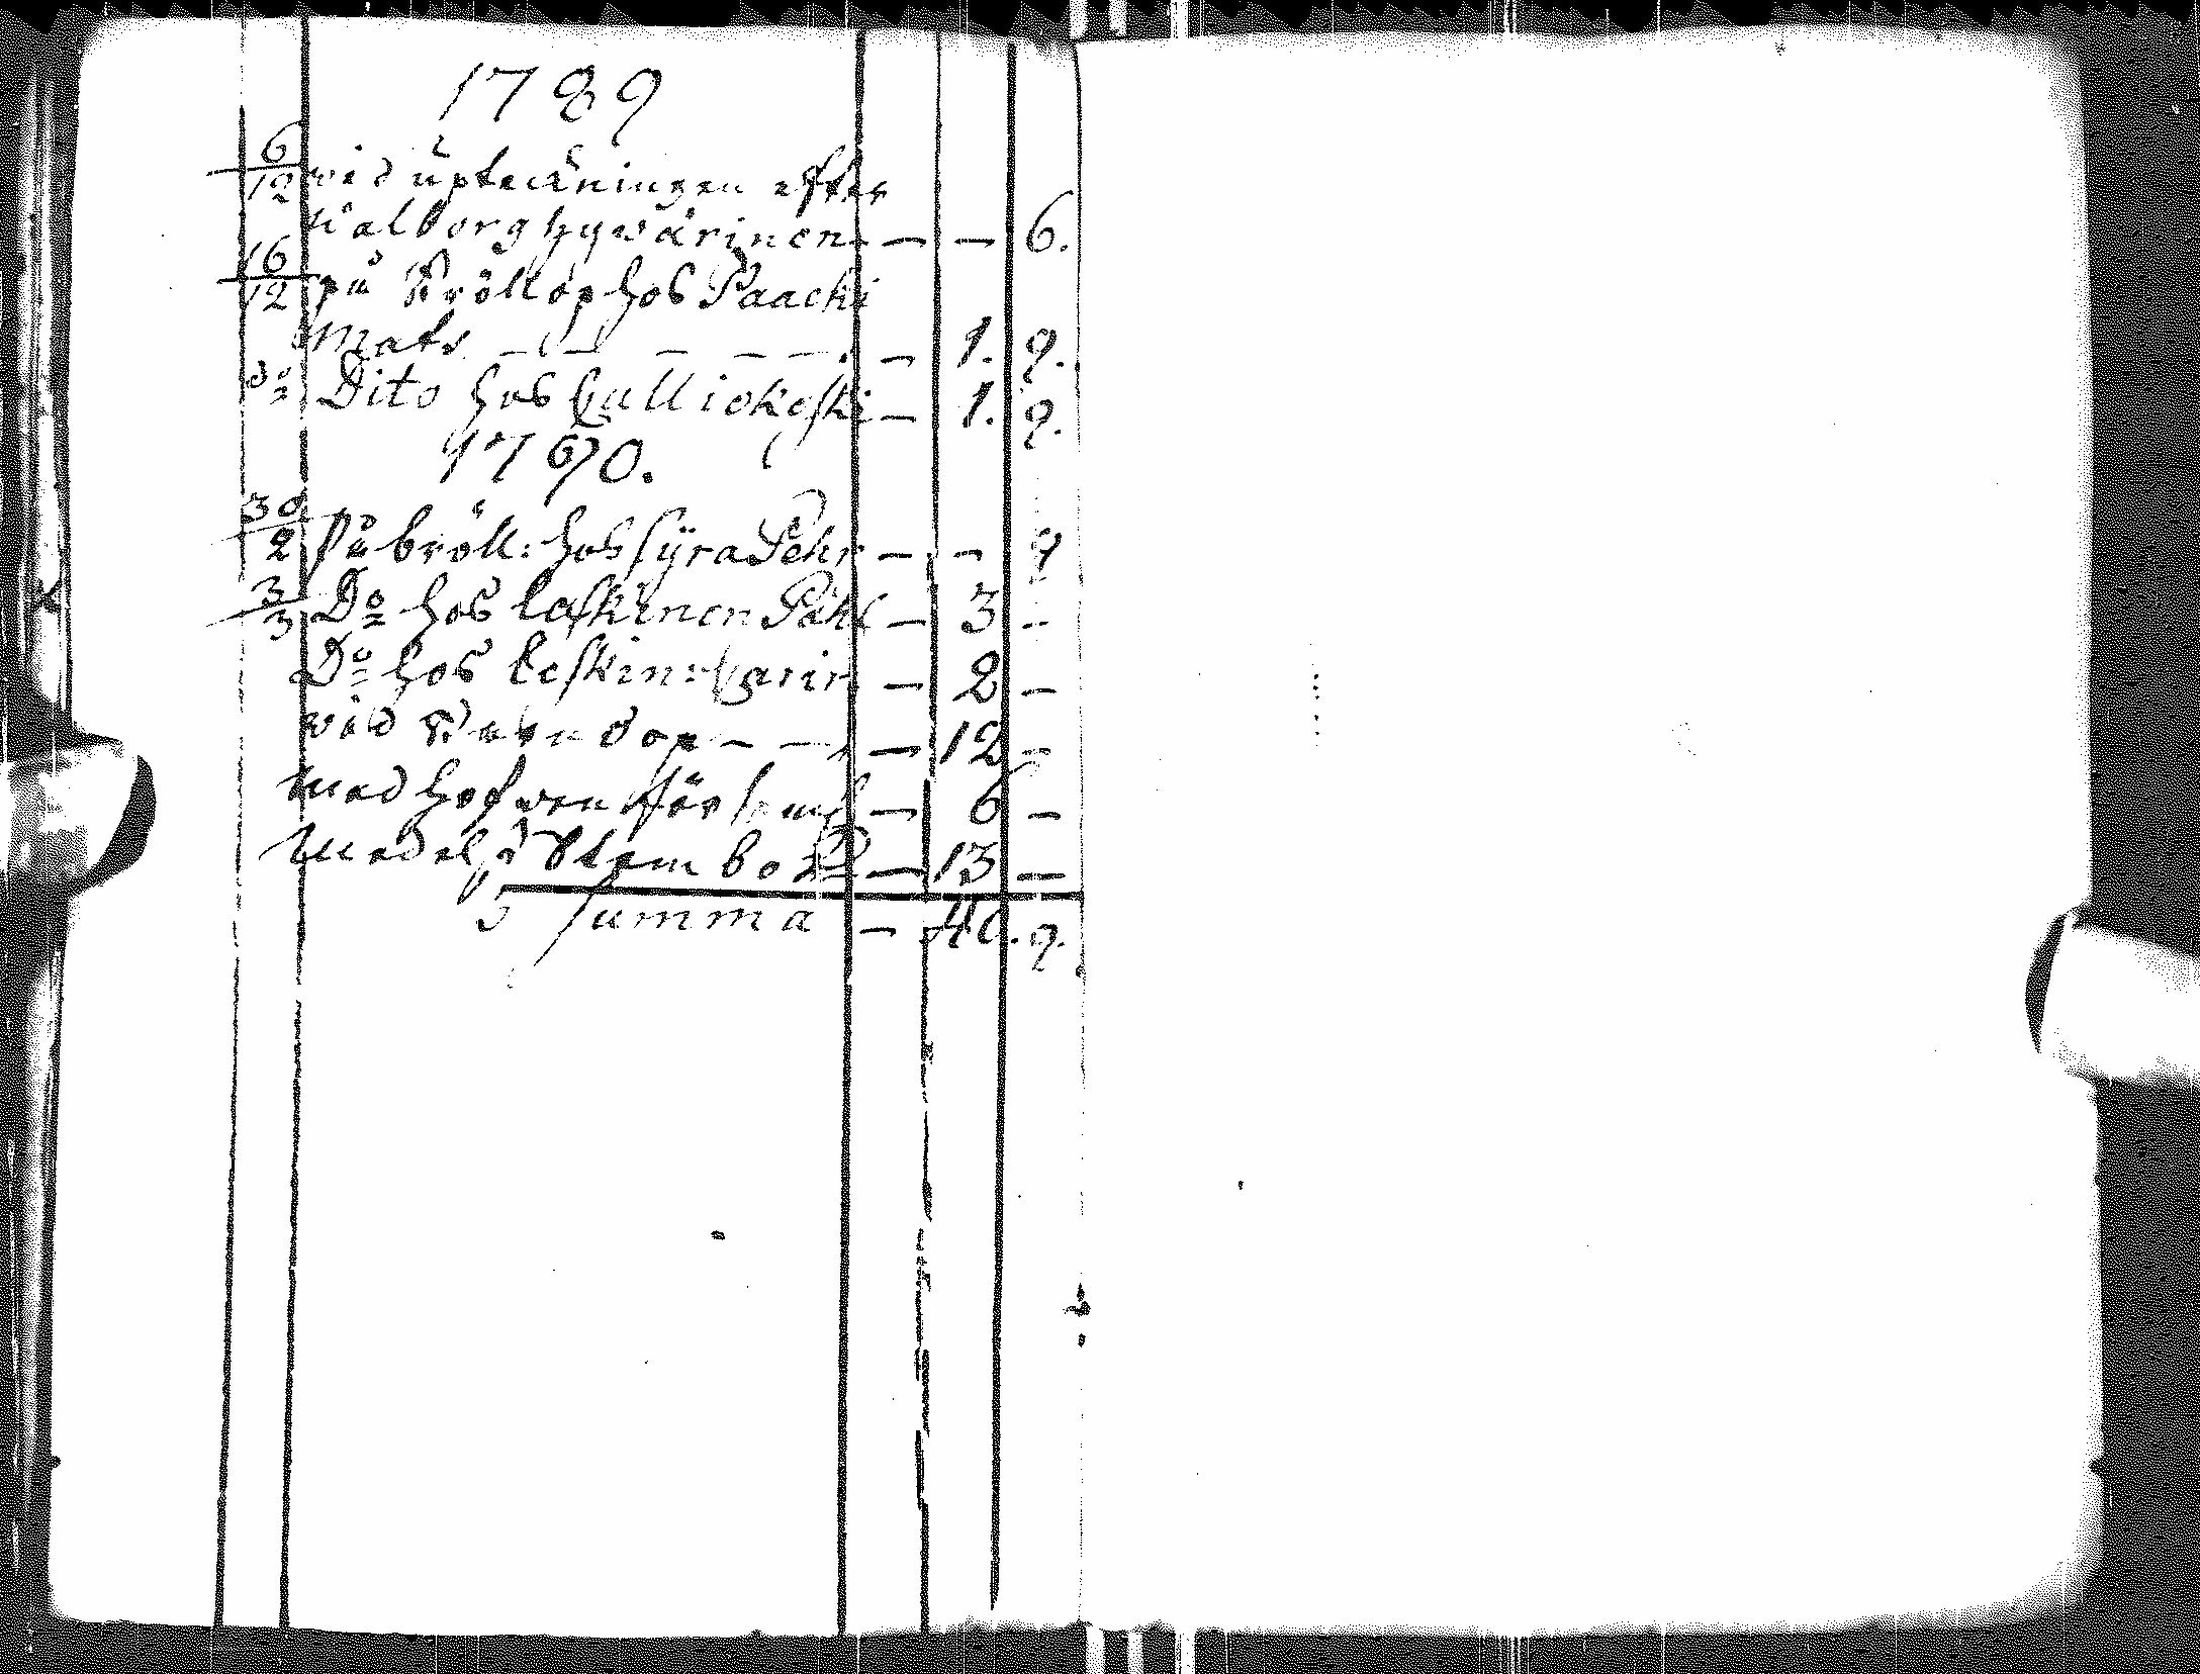 1789
6/12 vid upteckningen efter
Walborg hyvärinen - - 6.
16/12 på Bröllop hos Paachi
Mats - - - - - - 1. 9.
do Dito hos Kulliokoski - 1. 9.
1790.
30/2 På bröll: hos syra Pehr - - 9
3/3 Do hos laskinen Påhl - 3 -
Do hos leskin: Karin - 2 -
vid - - - 12 -
med hofwen för - 6 -
Medel i - 13 -
Summa - 40. 9.